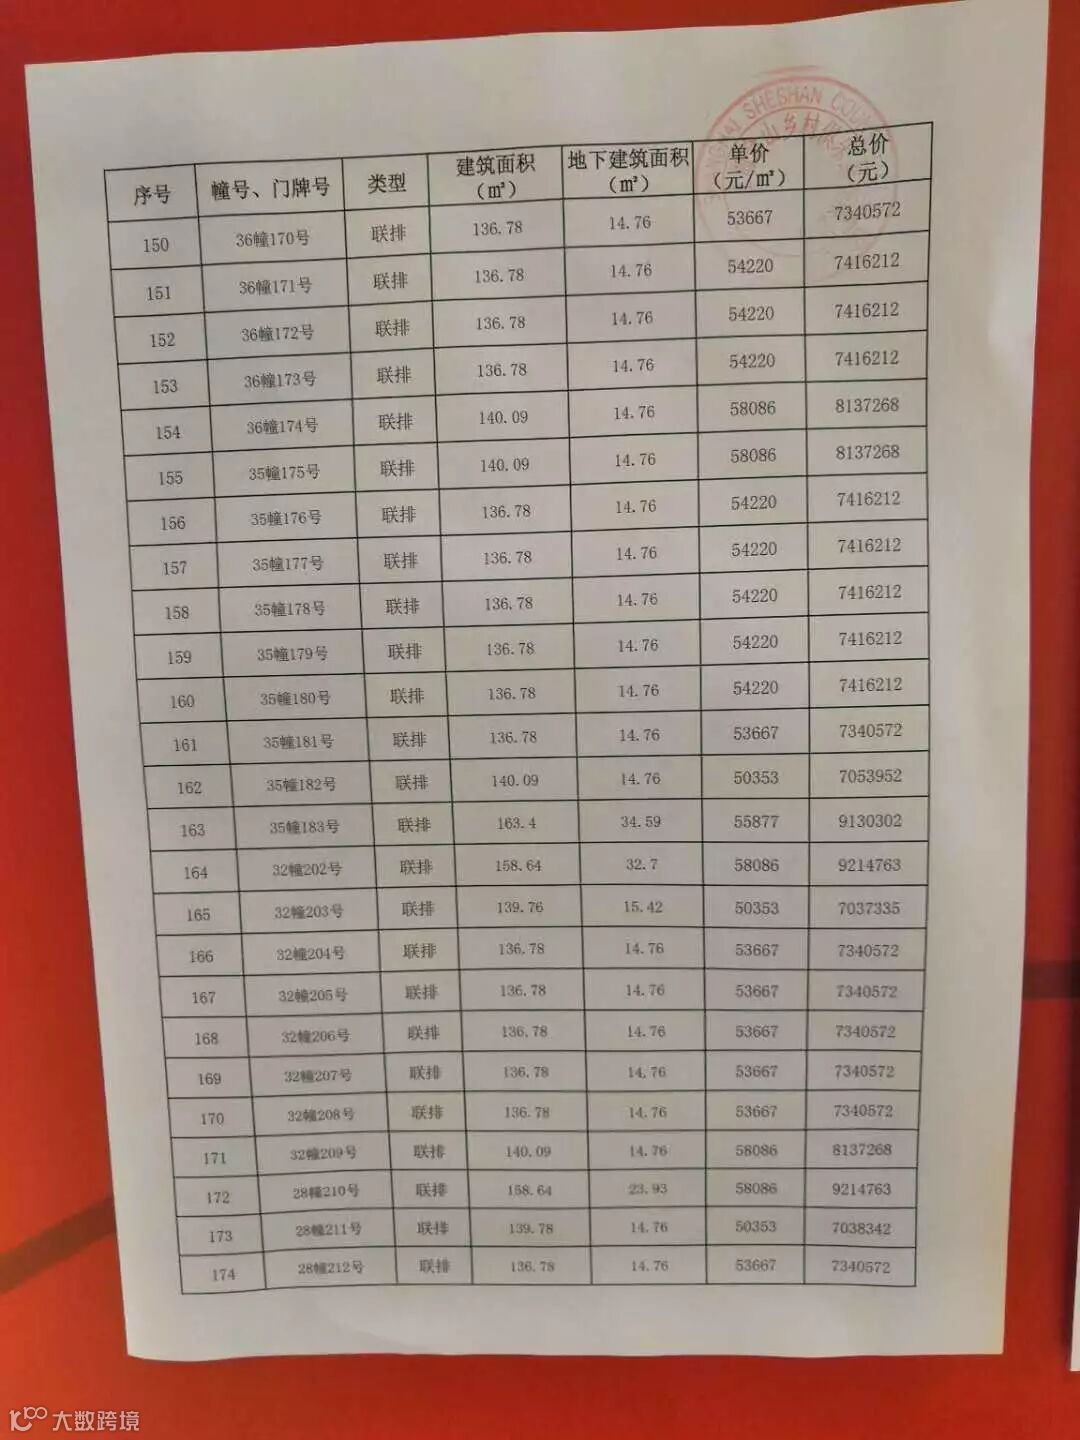 SHESHAN COU
山乡村俱
序号 幢号、门牌号 类型 建筑面积(㎡) 地下建筑面积(㎡) 单价(元/㎡) 总价(元)
150 36幢170号 联排 136.78 14.76 53667 7340572
151 36幢171号 联排 136.78 14.76 54220 7416212
152 36幢172号 联排 136.78 14.76 54220 7416212
153 36幢173号 联排 136.78 14.76 54220 7416212
154 36幢174号 联排 140.09 14.76 58086 8137268
155 35幢175号 联排 140.09 14.76 58086 8137268
156 35幢176号 联排 136.78 14.76 54220 7416212
157 35幢177号 联排 136.78 14.76 54220 7416212
158 35幢178号 联排 136.78 14.76 54220 7416212
159 35幢179号 联排 136.78 14.76 54220 7416212
160 35幢180号 联排 136.78 14.76 54220 7416212
161 35幢181号 联排 136.78 14.76 53667 7340572
162 35幢182号 联排 140.09 14.76 50353 7053952
163 35幢183号 联排 163.4 34.59 55877 9130302
164 32幢202号 联排 158.64 32.7 58086 9214763
165 32幢203号 联排 139.76 15.42 50353 7037335
166 32幢204号 联排 136.78 14.76 53667 7340572
167 32幢205号 联排 136.78 14.76 53667 7340572
168 32幢206号 联排 136.78 14.76 53667 7340572
169 32幢207号 联排 136.78 14.76 53667 7340572
170 32幢208号 联排 136.78 14.76 53667 7340572
171 32幢209号 联排 140.09 14.76 58086 8137268
172 28幢210号 联排 158.64 23.93 58086 9214763
173 28幢211号 联排 139.78 14.76 50353 7038342
174 28幢212号 联排 136.78 14.76 53667 7340572
大数跨境